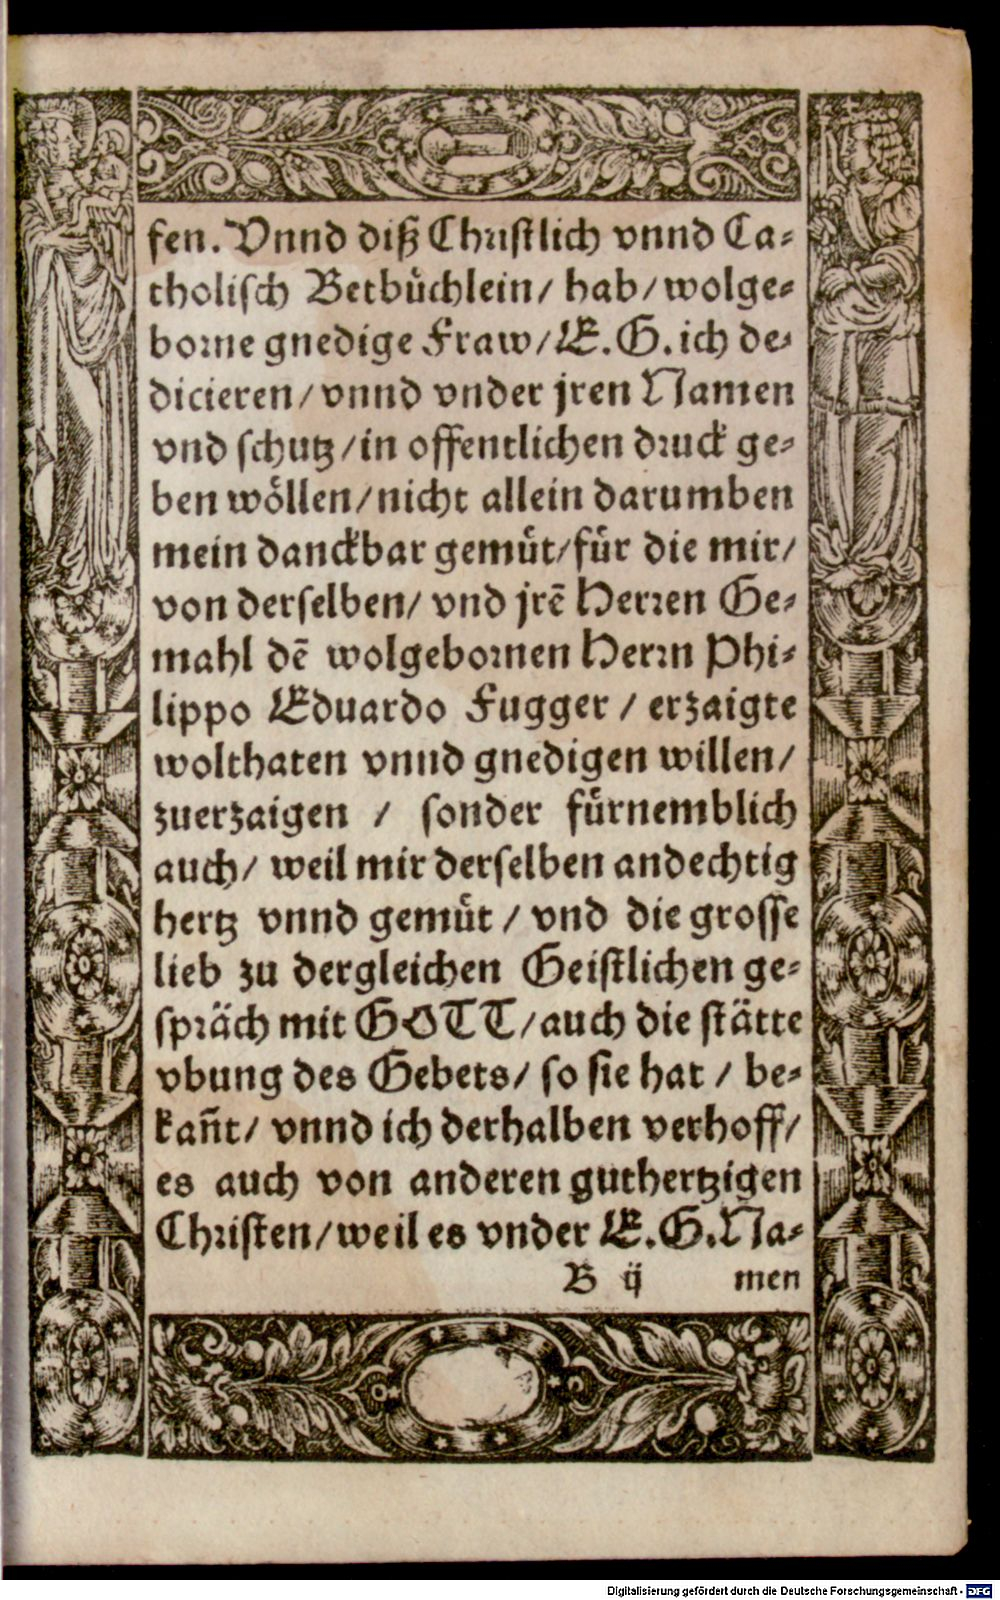 fen. Vnnd diß Christlich vnnd Ca⸗
tholisch Betbüchlein/ hab/ wolge⸗
borne gnedige Fraw/ E. G. ich de⸗
dicieren/ vnnd vnder jren Namen
vnd schutz/ in offentlichen druck ge⸗
ben wöllen/ nicht allein darumben
mein danckbar gemüt/ für die mir/
von derselben/ vnd jrē Herren Ge⸗
mahl dē wolgebornen Herrn Phi⸗
lippo Eduardo Fugger / erzaigte
wolthaten vnnd gnedigen willen/
zuerzaigen / sonder fürnemblich
auch/ weil mir derselben andechtig
hertz vnnd gemüt / vnd die grosse
lieb zu dergleichen Geistlichen ge⸗
spräch mit GOTT/ auch die stätte
vbung des Gebets/ so sie hat / be⸗
kañt/ vnnd ich derhalben verhoff/
es auch von anderen guthertzigen
Christen/ weil es vnder E. G. Na⸗
B ij men
Digitalisierung gefördert durch die Deutsche Forschungsgemeinschaft - DFG